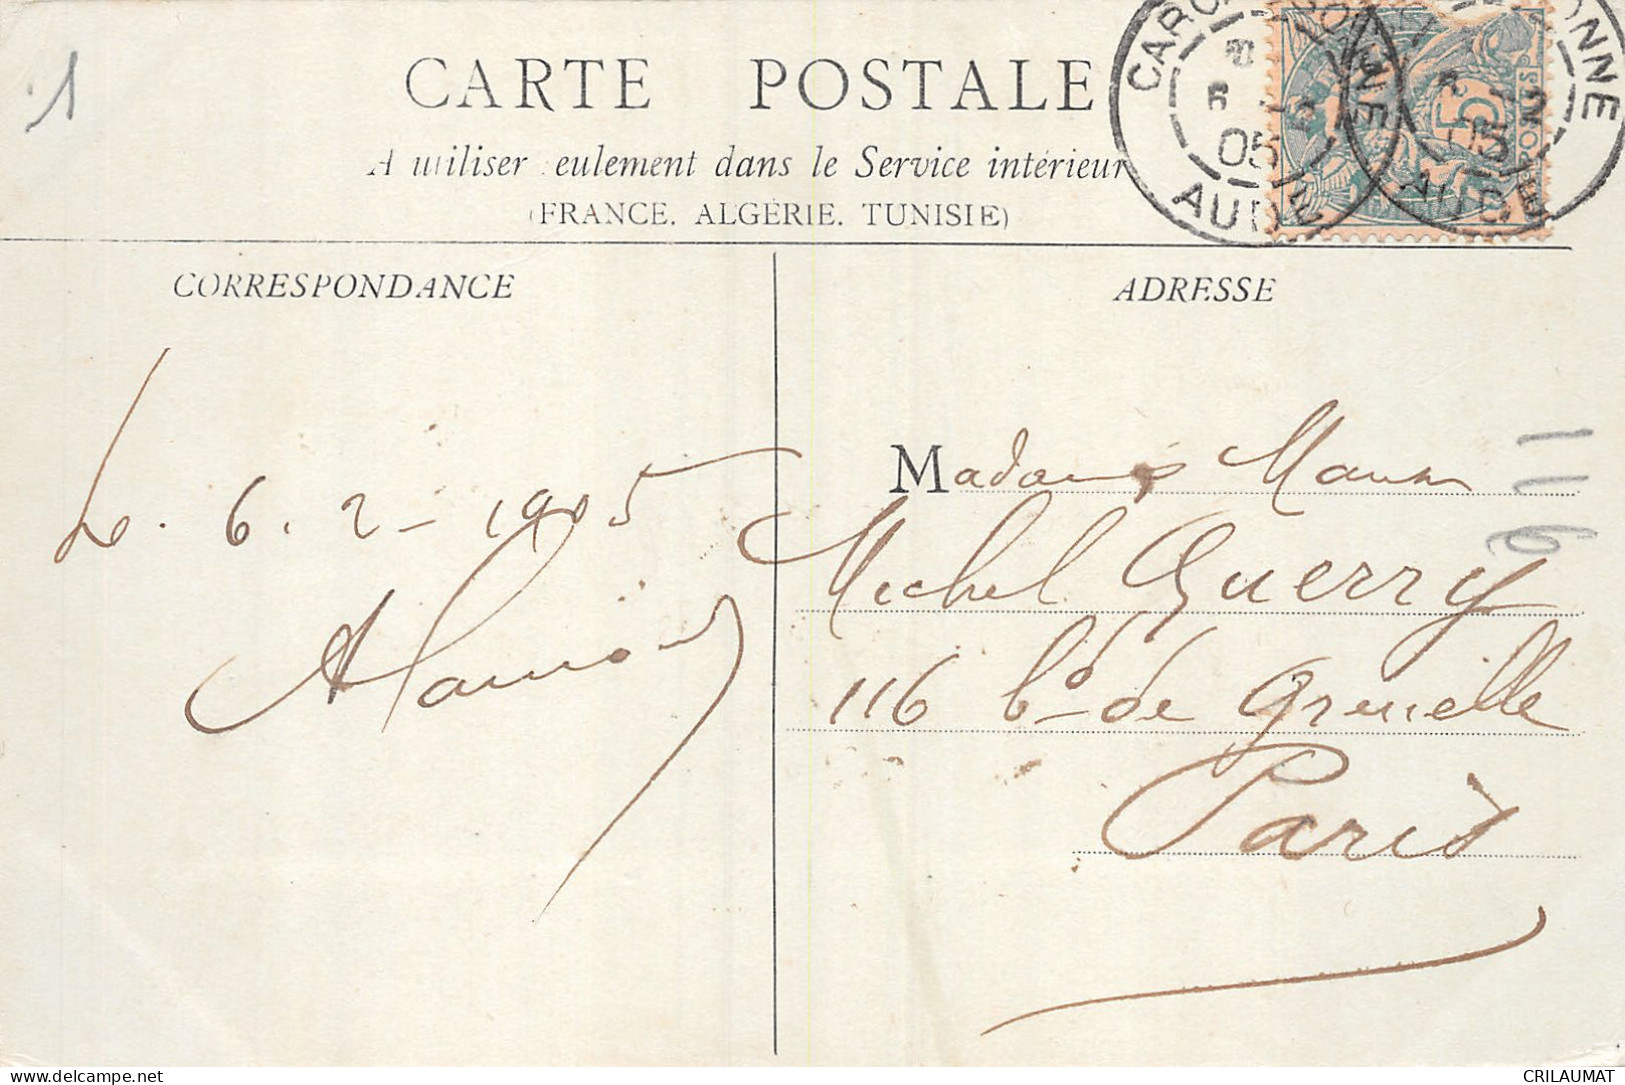 1
CARTE POSTALE
A utiliser seulement dans le Service intérieur
(FRANCE. ALGÉRIE. TUNISIE)
05
AUDE
5
POSTES
CORRESPONDANCE
ADRESSE
Le. 6. 2 - 1905
Madame
Michel Guerry
116 bd de Grenelle
Paris
116
delcampe.net
CRILAUMAT